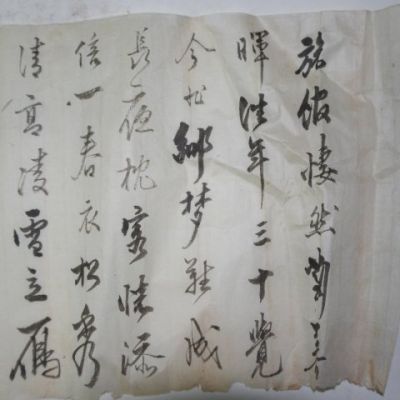 旅館悽然對
暉往年三十覺
今非鄉夢難成
長夜枕客情添
倍一春衣松秀
清高凌雪立雁